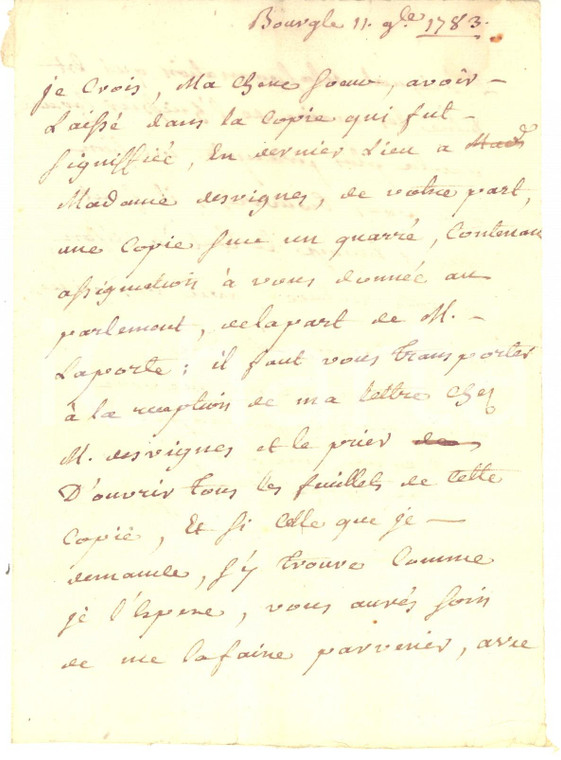 Bourgle 11. 9bre 1783.
je Crois, Ma Chere Soeur, avoir -
Laissé dans la Copie qui fut -
signiffiée, En dernier Lieu a Made
Madame desvignes, de votre part,
une Copie sur un quarré, Contenan
assignation à vous donnée au
parlement, delapart de M. -
Laporte ; il faut vous transporter
à la reception de ma lettre Chez
M. desvignes et le prier de
D'ouvrir tous les feuillets de Cette
Copie, Et si Celle que je -
demande, s'y trouve Comme
je l'Espere, vous aurés soin
de me la faire parvenir, avec